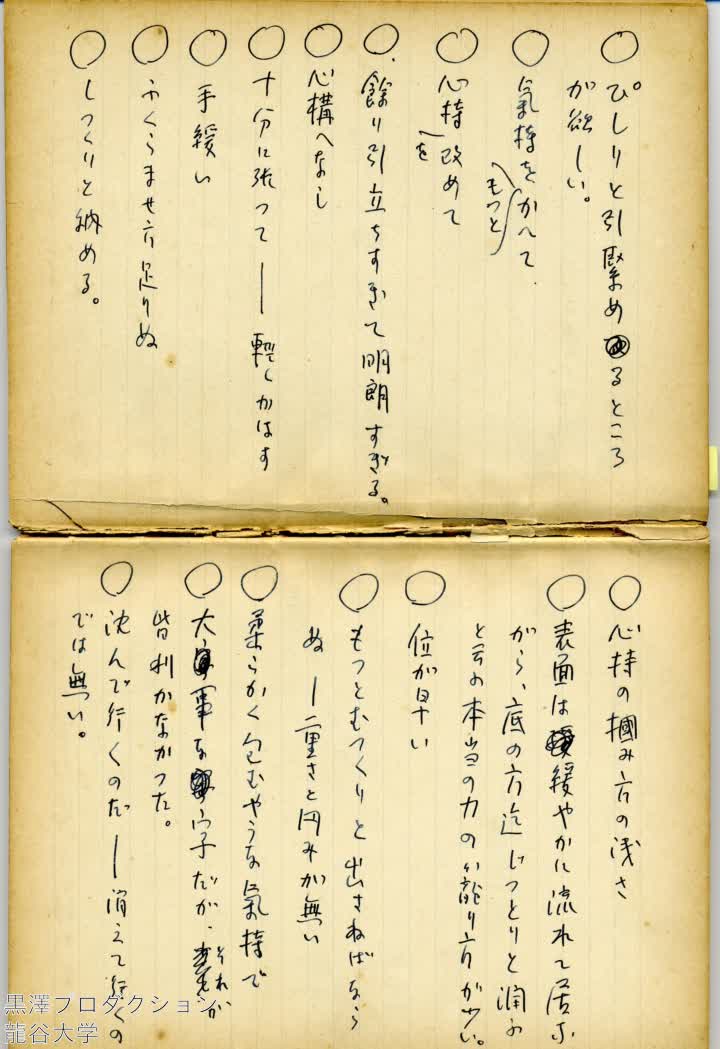 ○ ぴしりと引緊めるところ
が欲しい。
○ 氣持をもつとかへて
○ 心持を改めて
○ 餘り引立ちすぎて明朗すぎる。
○ 心構へなし
○ 十分に張つて―軽くかはす
○ 手緩い
○ ふくらませ方足りぬ
○ しつくりと納める。
○ 心持の掴み方の浅さ
○ 表面は緩やかに流れて居な
がら、底の方迄じつとりと潤ふ
と云ふ本当の力の籠り方が少い。
○ 位が早い
○ もつとむつくりと出さねばなら
ぬ―重さと円みが無い
○ 柔らかく包むやうな氣持で
○ 大軍な字だが、それが
皆利かなかつた。
○ 沈んで行くのだ―消えて行くの
では無い。
黒澤プロダクション
龍谷大学